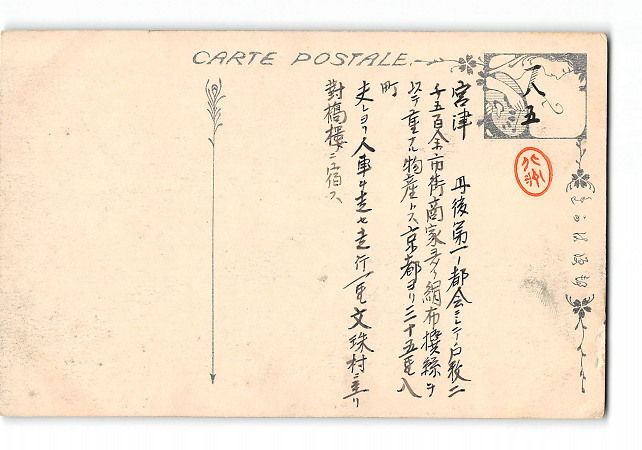 CARTE POSTALE.
一八五
宮津 丹後第一ノ都会ニシテ戸数二
千五百余市街商家多ク絹布撰糸ヲ
以テ重ナル物産トス京都ヨリ三十五里八
町
夫ヨリ人車ヲ走セ走行一里文珠村ニ至リ
對橋樓ニ宿ス